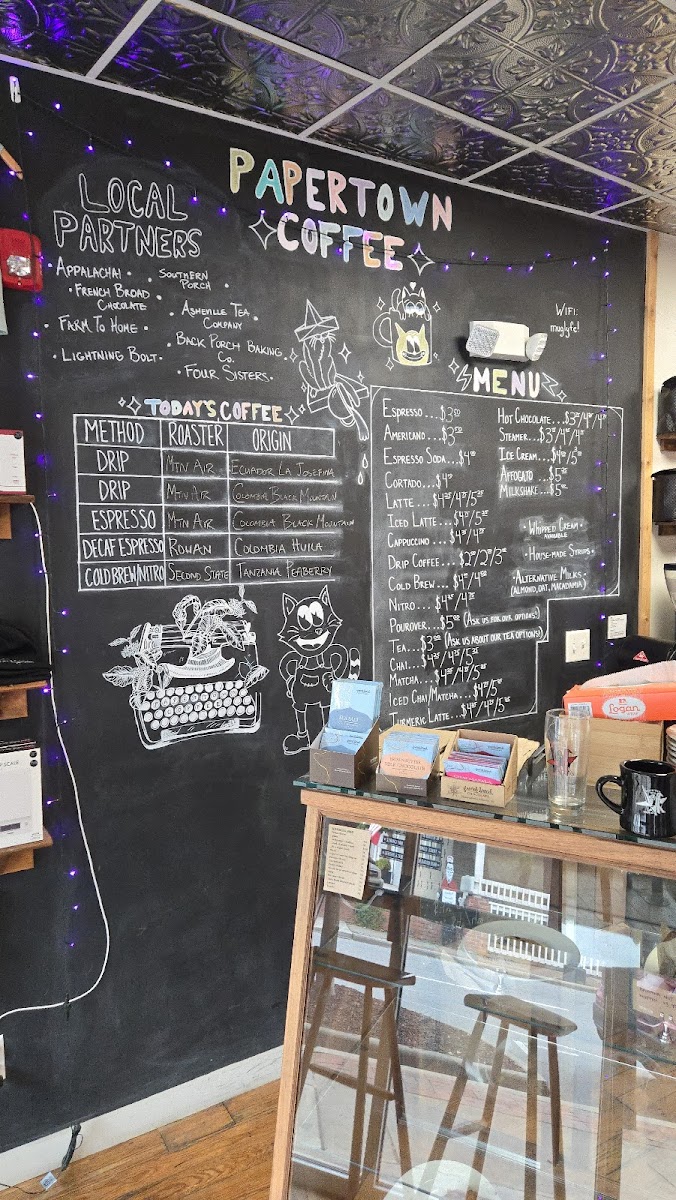 PAPERTOWN
COFFEE
LOCAL
PARTNERS
APPALACHI •
SOUTHERN
PORCH •
• FRENCH BROAD
CHOCOLATE •
ASHEVILLE TEA
COMPANY •
• FARM TO HOME •
BACK PORCH BAKING
Co. •
• LIGHTNING BOLT •
• FOUR SISTERS •
WIFI:
muglyfe!
TODAY'S COFFEE
METHOD ROASTER ORIGIN
DRIP MTN AIR ECUADOR LA JOSEFINA
DRIP MTN AIR COLOMBIA BLACK MOUNTAIN
ESPRESSO MTN AIR COLOMBIA BLACK MOUNTAIN
DECAF ESPRESSO ROWAN COLOMBIA HUILA
COLD BREW/NITRO SECOND STATE TANZANIA PEABERRY
MENU
ESPRESSO...$3
AMERICANO...$3
ESPRESSO SODA...$4
CORTADO...$4
LATTE...$4/4/5
ICED LATTE...$4/5
CAPPUCCINO...$4/4
DRIP COFFEE...$2/2/3
COLD BREW...$4/4
NITRO...$4/4
POUROVER...$5 (ASK US FOR OUR OPTIONS!)
TEA...$3 (ASK US ABOUT OUR TEA OPTIONS!)
CHAI...$4/4/5
MATCHA...$4/4/5
ICED CHAI/MATCHA...$4/5
TURMERIC LATTE...$4/4/5
HOT CHOCOLATE...$3/4/4
STEAMER...$3/4/4
ICE CREAM...$4/5
AFFOGATO...$5
MILKSHAKE...$5
• WHIPPED CREAM •
AVAILABLE
• HOUSE-MADE SYRUPS •
• ALTERNATIVE MILKS •
(ALMOND, OAT, MACADAMIA)
Logan